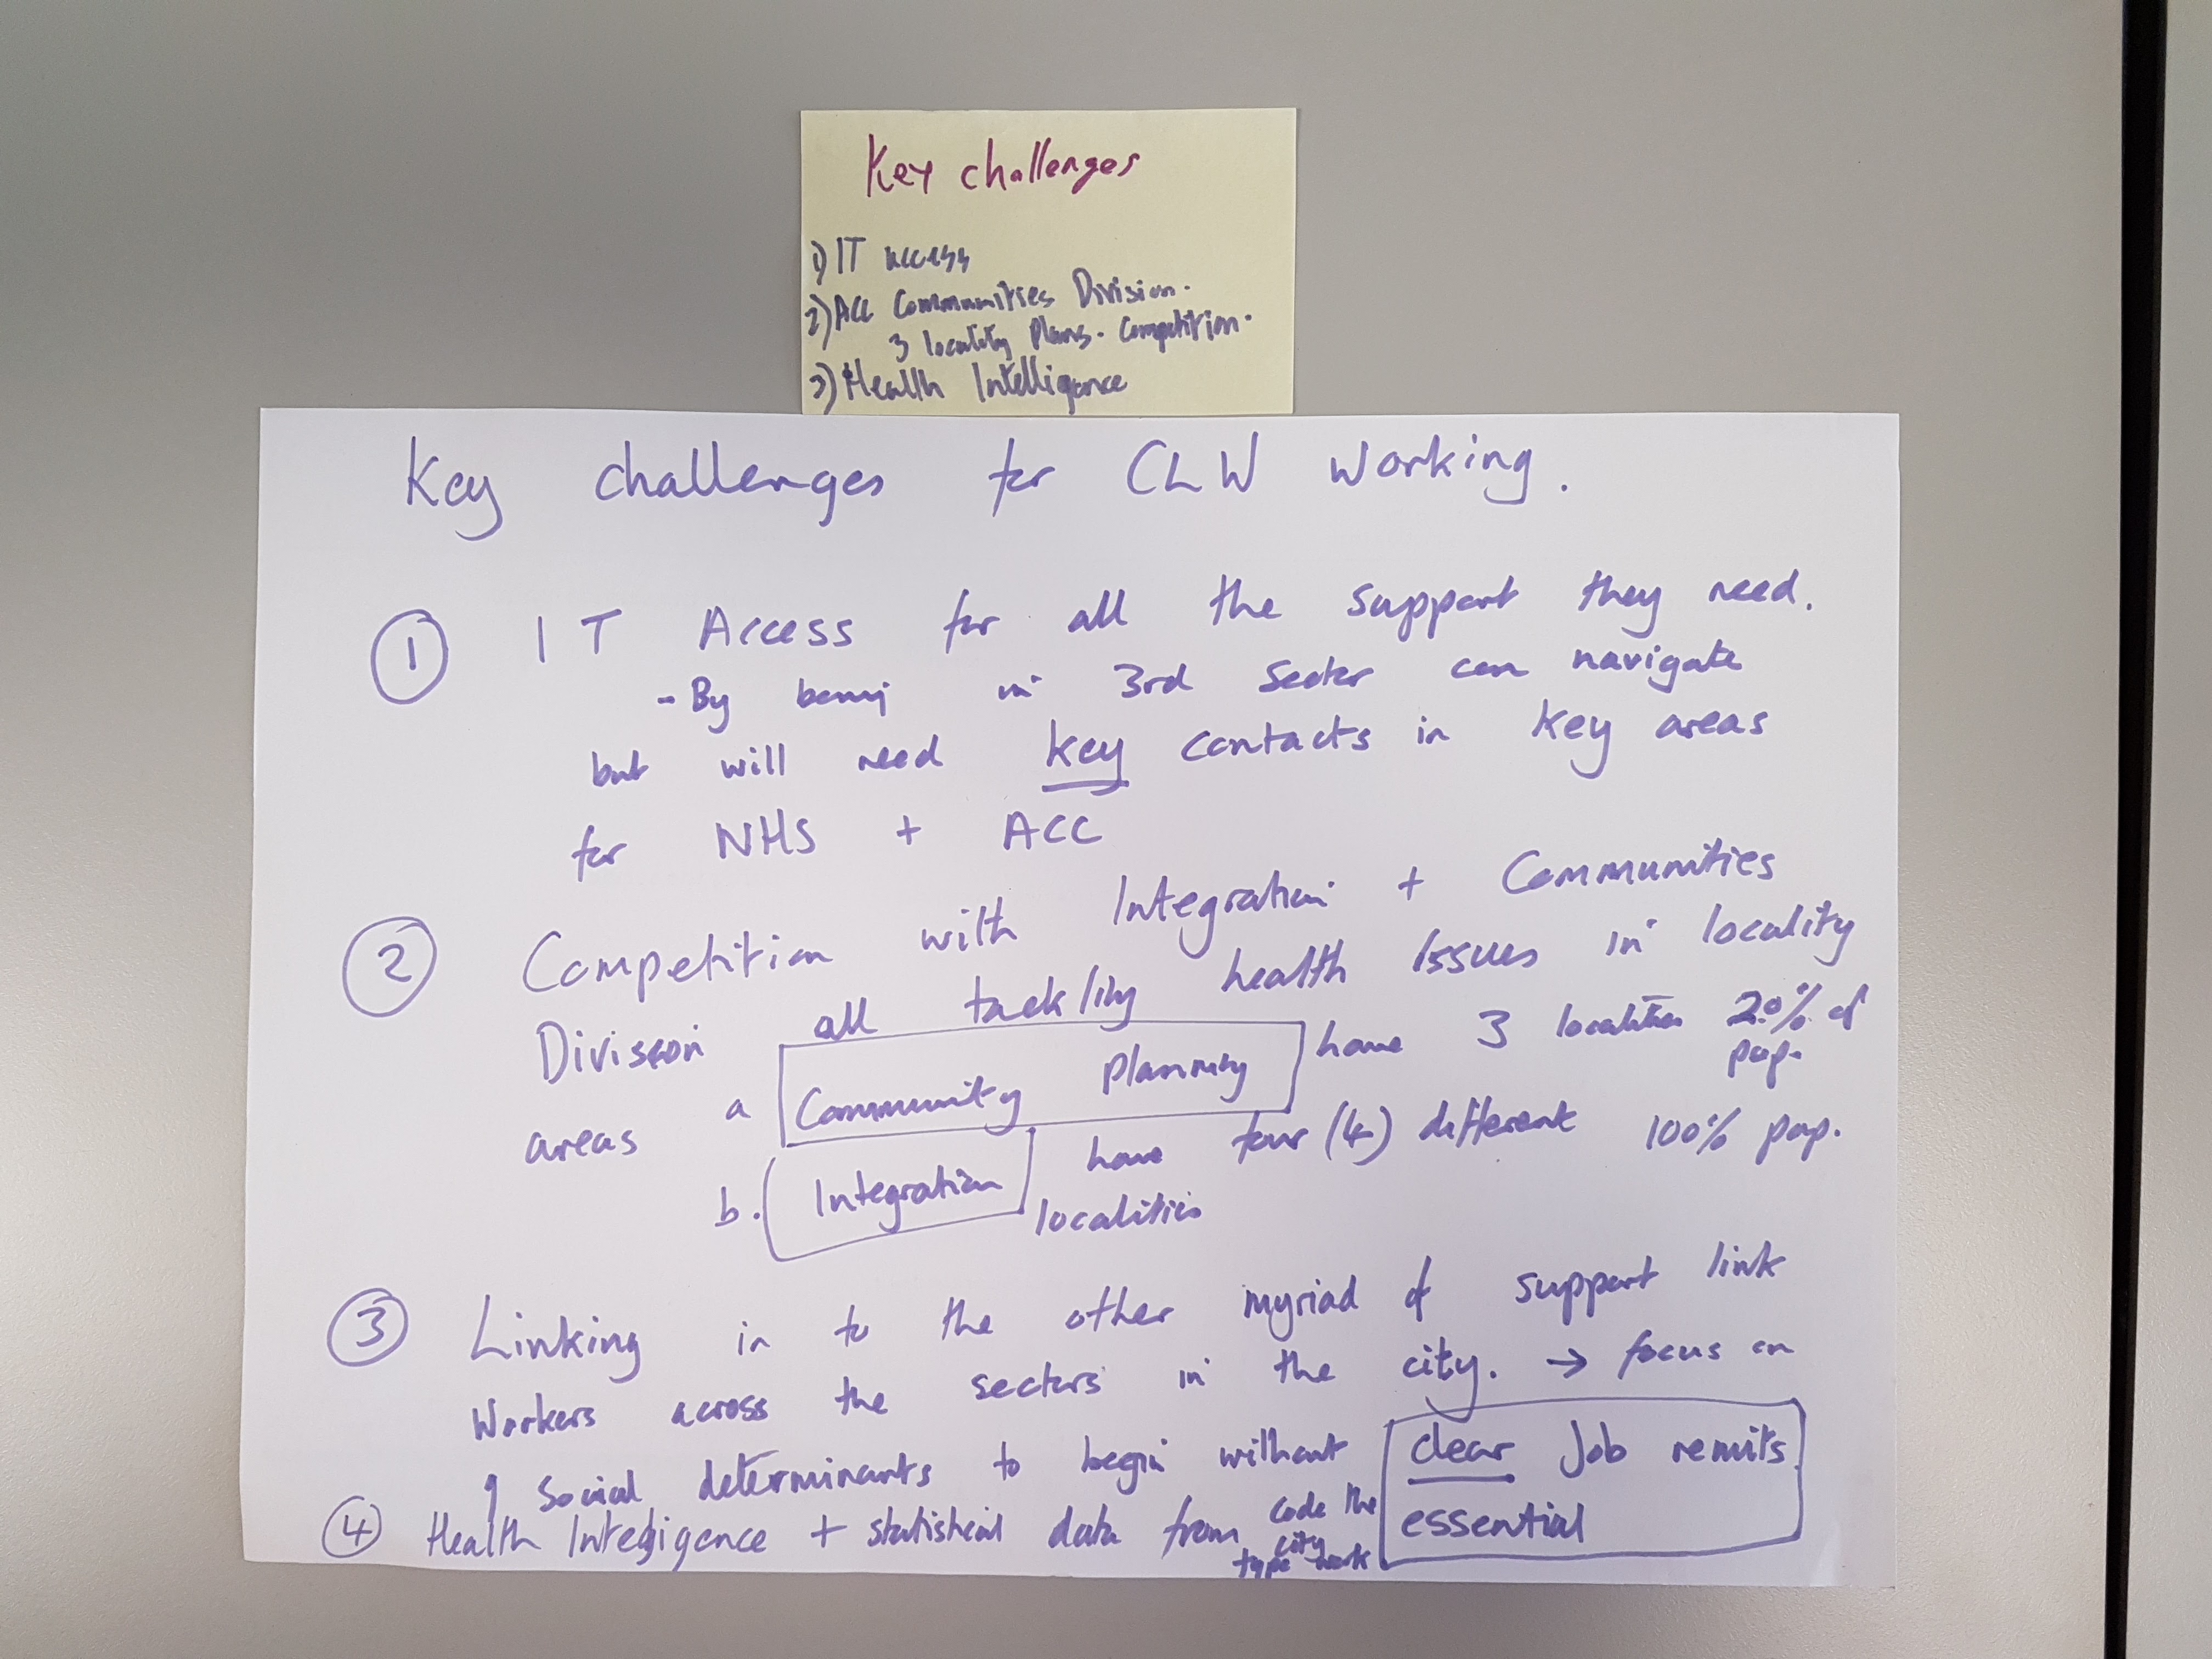 Key challenges
1) IT access
2) ACC Communities Division.
3 locality Plans. Competition.
3) Health Intelligence
Key challenges for CLW working.
1 IT Access for all the support they need.
- By being in 3rd Sector can navigate
but will need key contacts in key areas
for NHS + ACC
2 Competition with Integration + Communities
Division all tackling health issues in locality
areas a Community Planning have 3 localities 20% of
pop.
b. Integration have four (4) different 100% pop.
localities
3 Linking in to the other myriad of support link
Workers across the sectors in the city. → focus on
social determinants to begin without clear Job remits
essential
4 Health Intelligence + statistical data from code the
city
type work